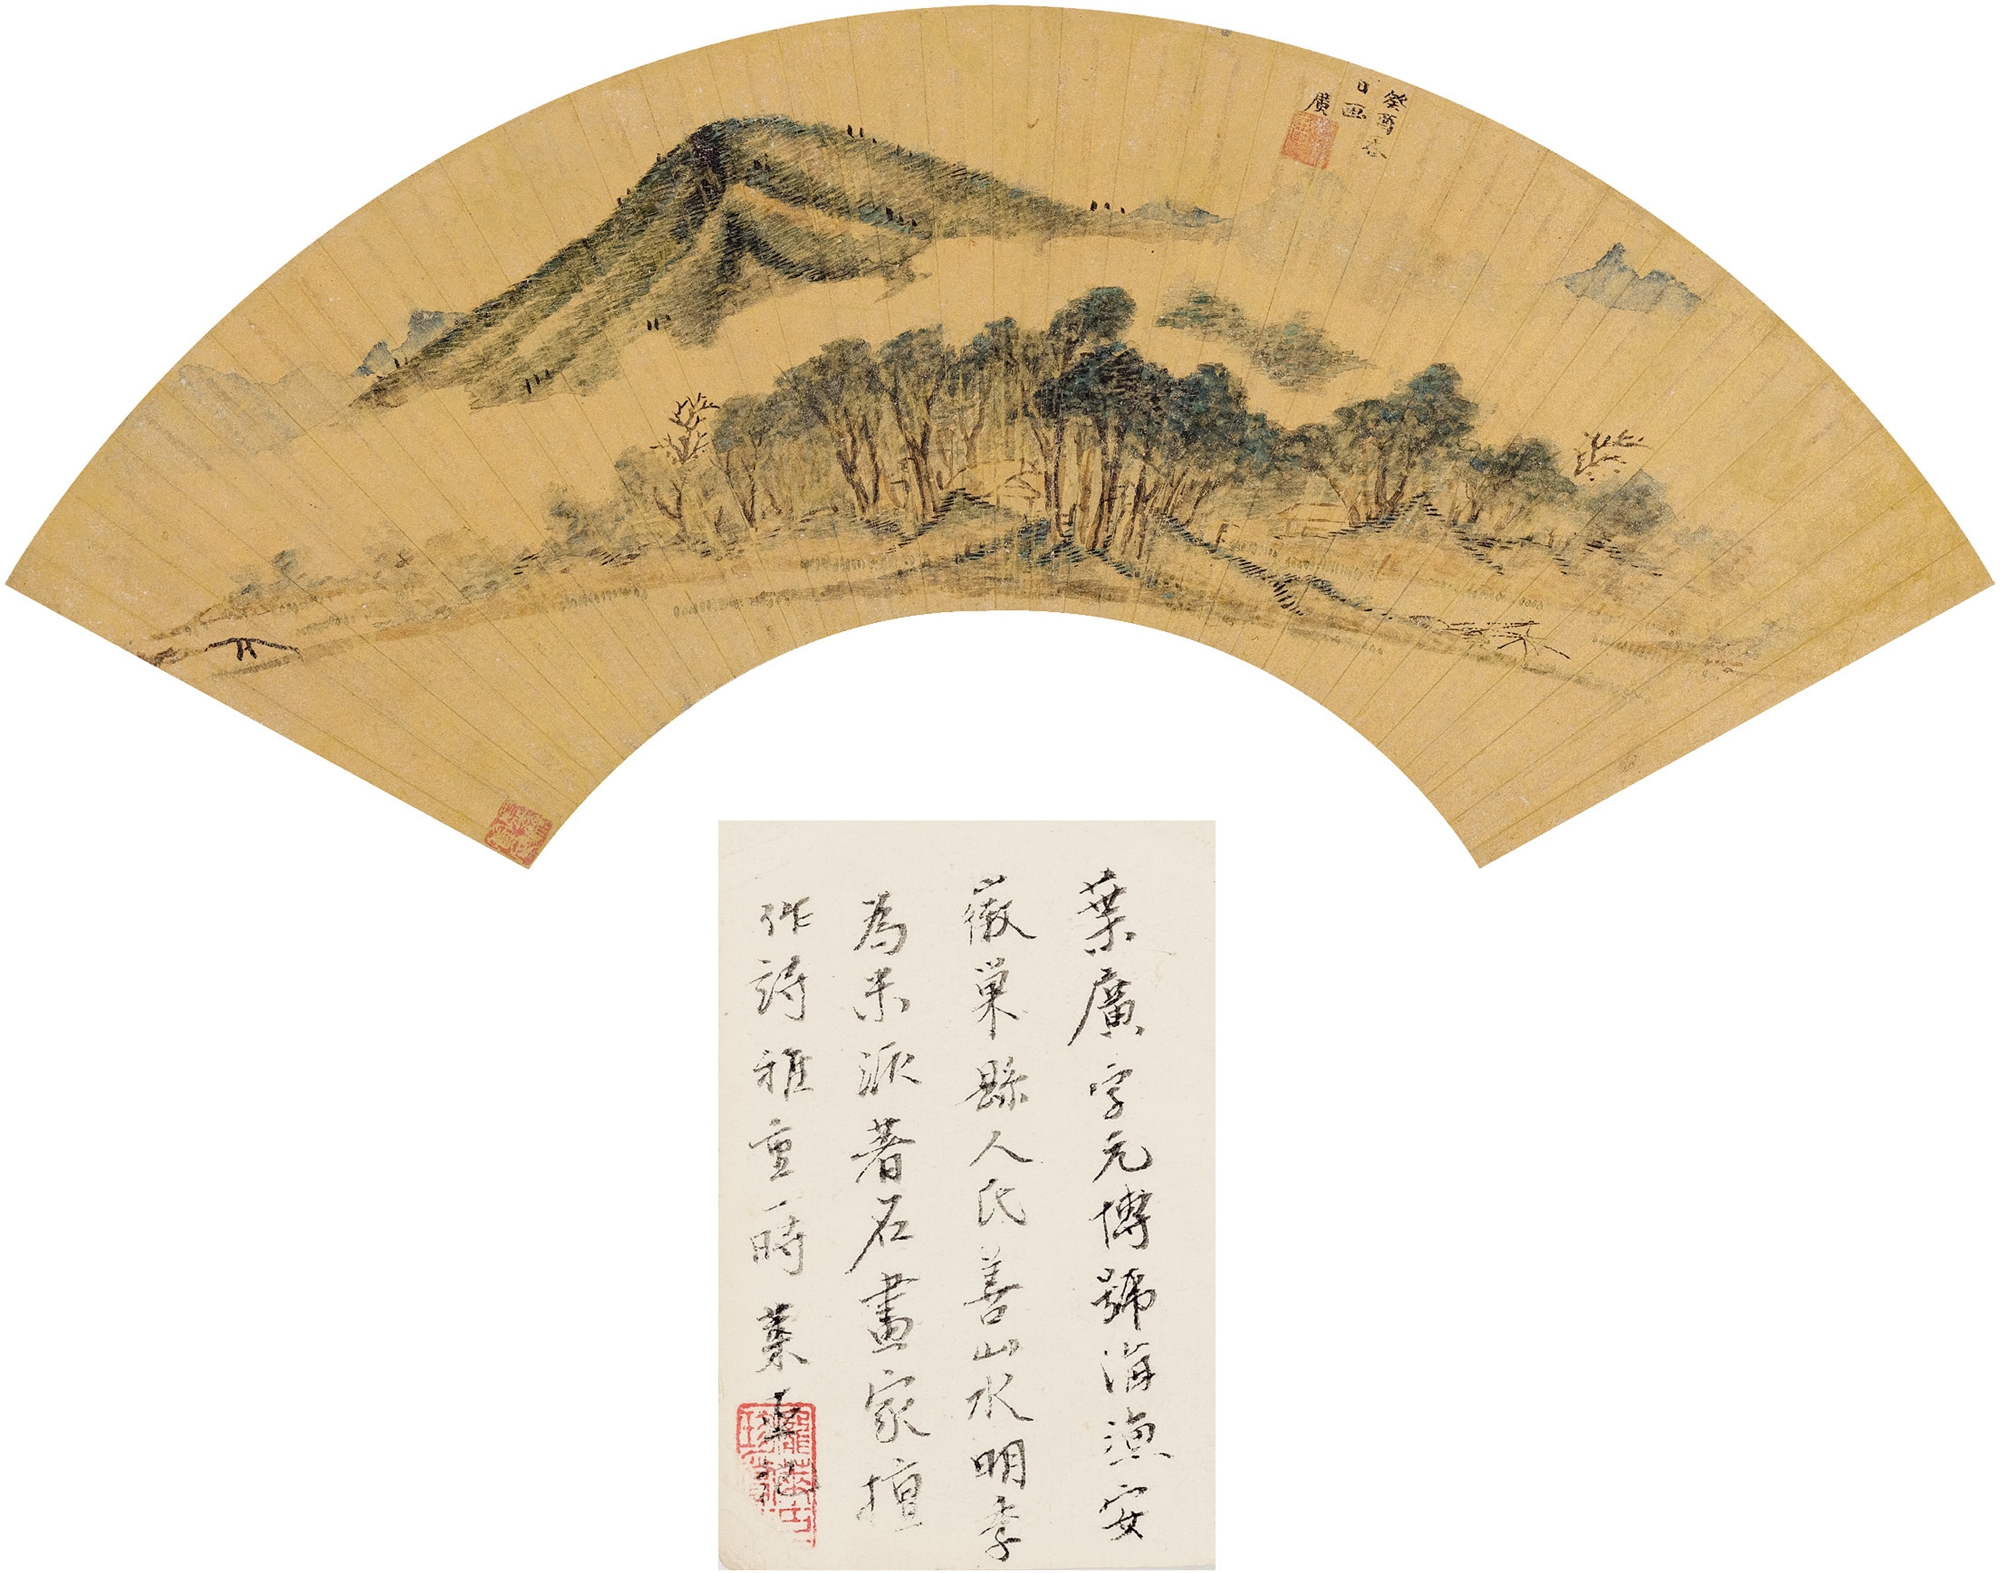 癸酉春
日画
廣
葉廣字元博號滆漁安
徽巢縣人氏善山水明季
為米派著名畫家擅
作詩雅重一時葉